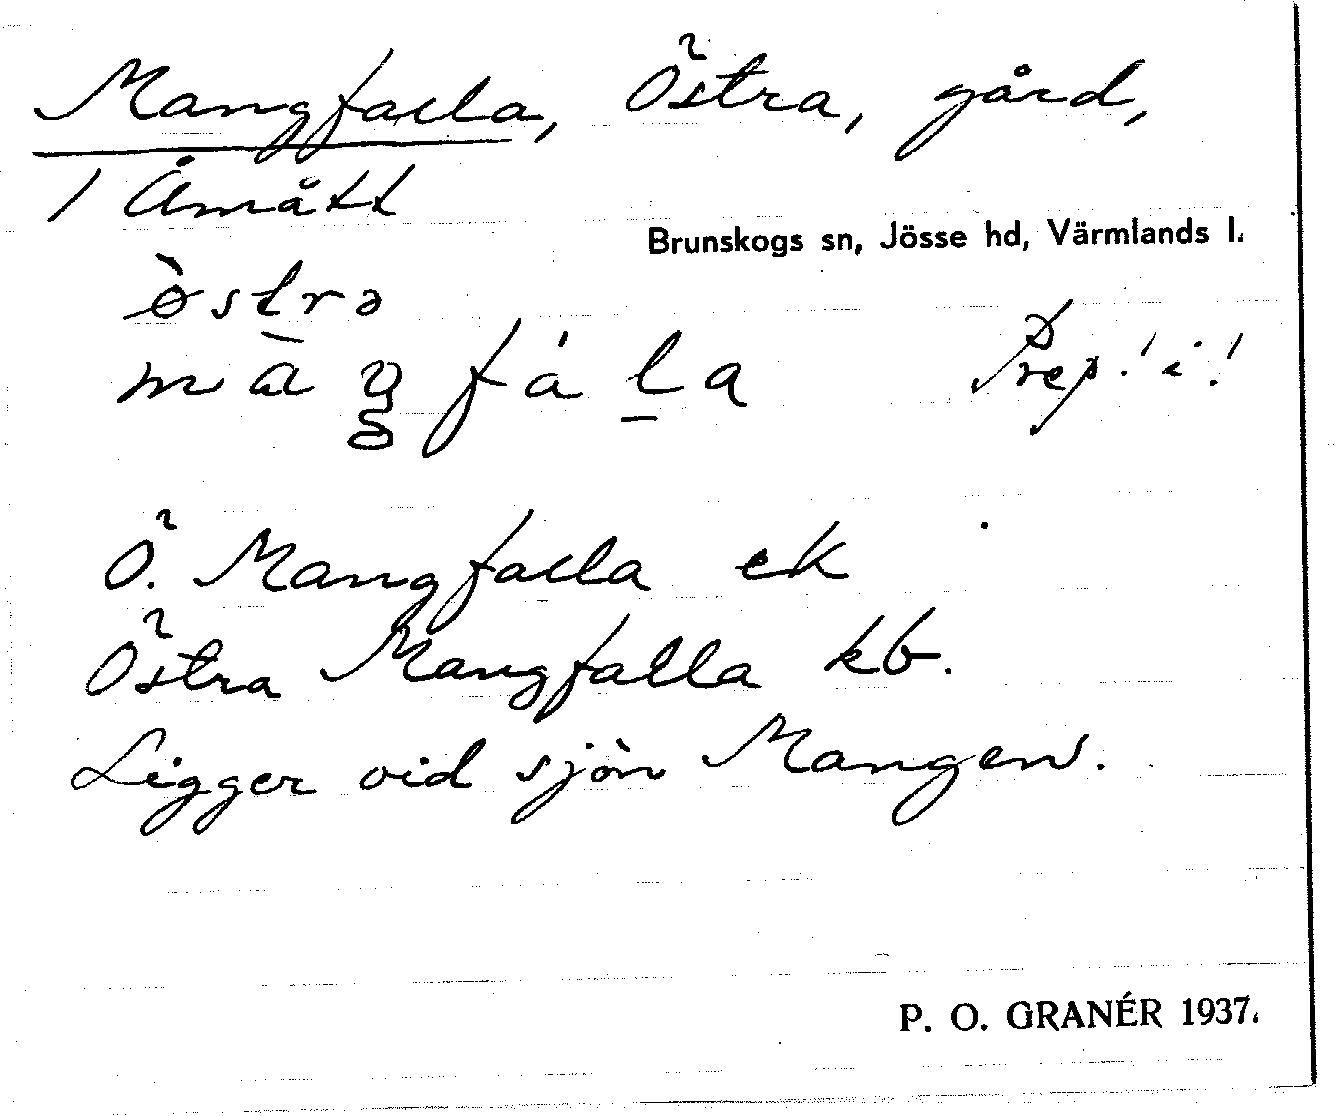 Mangfalla, Östra, gård,
1 Åmått
Brunskogs sn, Jösse hd, Värmlands l.
östrə
màŋfáḻa Prep! i!
Ö. Mangfalla ek
Östra Mangfalla kb.
Ligger vid sjön Mangen.
P. O. GRANÉR 1937.